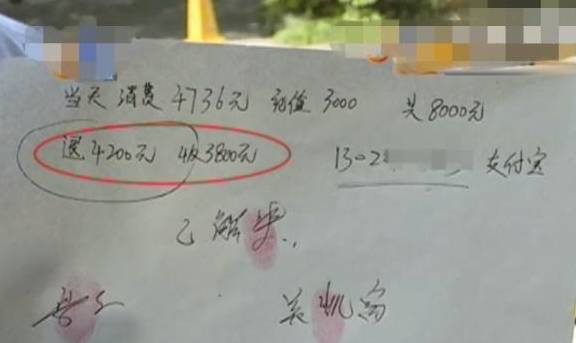 当天 消费 4736元 充值 3000 共 8000元
退 4200元 收 3800元 1302 支付宝
已解决